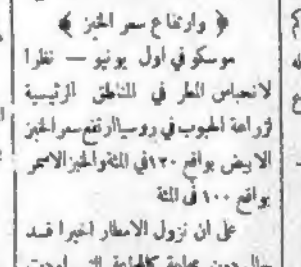 ﴿ وارتفاع سعر الخبز ﴾
موسكو في اول يونيو — نظرا
لانحباس المطر في المناطق الرئيسية
لزراعة الحبوب في روسيا ارتفع سعر الخبز
الابيض بواقع ١٢٠ في المئة والخبز الاسمر
بواقع ١٠٠ في المئة
على ان نزول الامطار اخيرا قد
حال دون مجاعة كالمجاعة التي